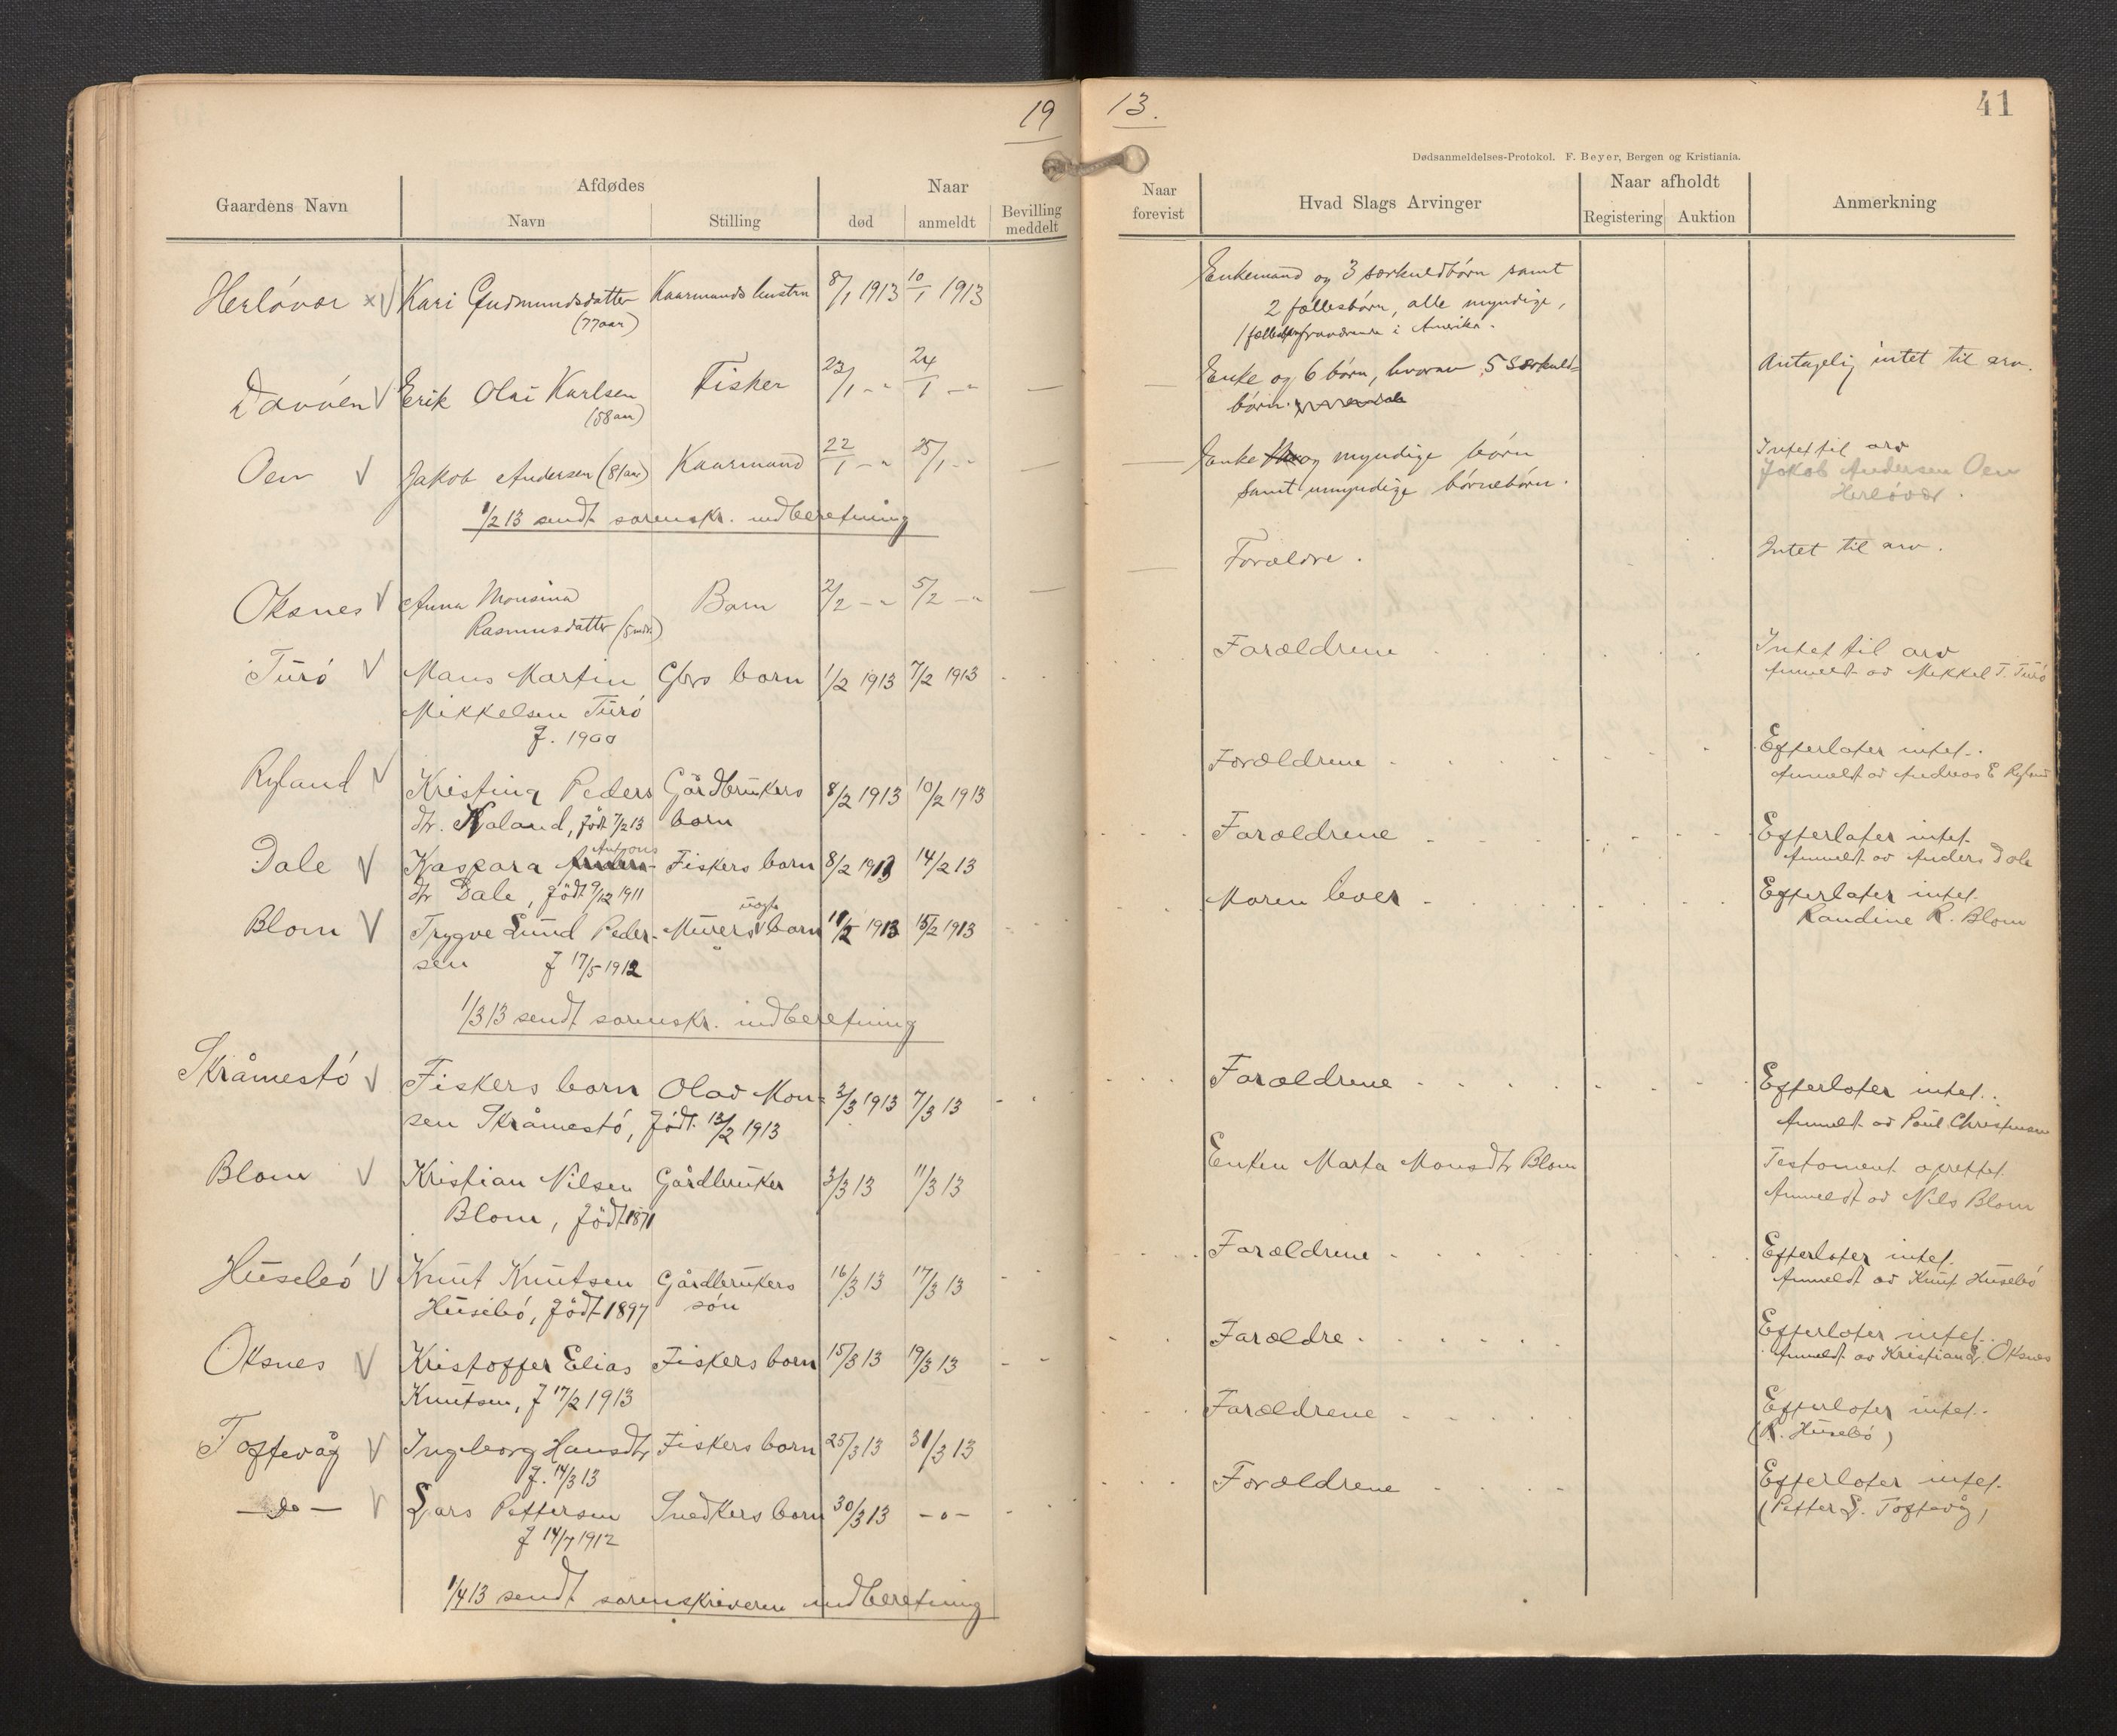 19
Afdødes
Naar
Gaardens Navn
Navn
Stilling
død
anmeldt
Bevilling
meddelt
Herløvær x V Kari Gudmundsdatter Kaarmands hustru 8/1 1913 10/1 1913
(77 aar)
V Erik Olai Karlsen Fisker 23/1 -"- 24/1 -"- —
(58 aar)
Oen V Jakob Andersen (81 aar) Kaarmand 22/1 -"- 25/1 -"- —
1/2 13 sendt sorenskr. indberetning
Oksnes V Anna Monsina Barn 2/2 -"- 5/2 -"- —
Rasmusdatter (5 mdr.)
Turø V Mans Martin Gbrs barn 1/2 1913 7/2 1913
Mikkelsen Turø
f. 1900
Ryland V Kristina Peders Gårdbrukers 8/2 1913 10/2 1913
dtr. Ryland, født 7/2 13 barn
Antons
Dale V Kaspara Anders- Fiskers barn 8/2 1913 14/2 13
dtr Dale, født 9/12 1911
uægte
Blom V Trygve Lund Peder- Murers barn 11/2 1913 15/2 1913
sen f 17/5 1912
1/3 13 sendt sorenskr. indberetning
Skråmestø V Fiskers barn Olav Mon- 3/3 1913 7/3 13
sen Skråmestø, født 12/2 1913
Blom V Kristian Nilsen Gårdbruker 3/3 13 11/3 13
Blom, født 1871
Husebø V Knut Knutsen Gårdbrukers 16/3 13 17/3 13
Husebø, født 1897 søn
Oksnes V Kristoffer Elias Fiskers barn 15/3 13 19/3 13
Knutsen, f 17/2 1913
Toftevåg V Ingeborg Hansdtr Fiskers barn 25/3 13 31/3 13
f. 14/3 13
— do — V Lars Pettersen Snedkers barn 30/3 13 -o-
f 14/7 1912
1/4 13 sendt sorenskriveren indberetning
13.
41
Dødsanmeldelses-Protokol. F. Beyer, Bergen og Kristiania.
Naar
forevist
Hvad Slags Arvinger
Naar afholdt
Registering
Auktion
Anmerkning
Enkemand og 3 særkuldbørn samt
2 fællesbørn, alle myndige,
1 fraværende i Amerika.
Enke og 6 børn, hvorav 5 særkuld- Antagelig intet til arv.
børn.
Enke og myndige børn Intet til arv
samt umyndige børnebørn. Jakob Andersen Oen
Herløvær.
Forældre. Intet til arv.
Forældrene Intet til arv
Anmeldt av Mikkel T. Turø
Forældrene Efterlater intet.
Anmeldt av Andreas E Ryland
Forældrene Efterlater intet.
Anmeldt av Anders Dale
Moren lever Efterlater intet.
Randine R. Blom
Forældrene Efterlater intet.
Anmeldt av Paul Christensen
Enken Marta Monsdtr Blom Testament oprettet
Anmeldt av Nils Blom
Forældrene Efterlater intet.
Anmeldt av Knut Husebø
Forældre Efterlater intet.
Anmeldt av Kristian Oksnes
Forældrene Efterlater intet.
(R. Husebø)
Forældrene Efterlater intet.
(Petter L. Toftevåg)